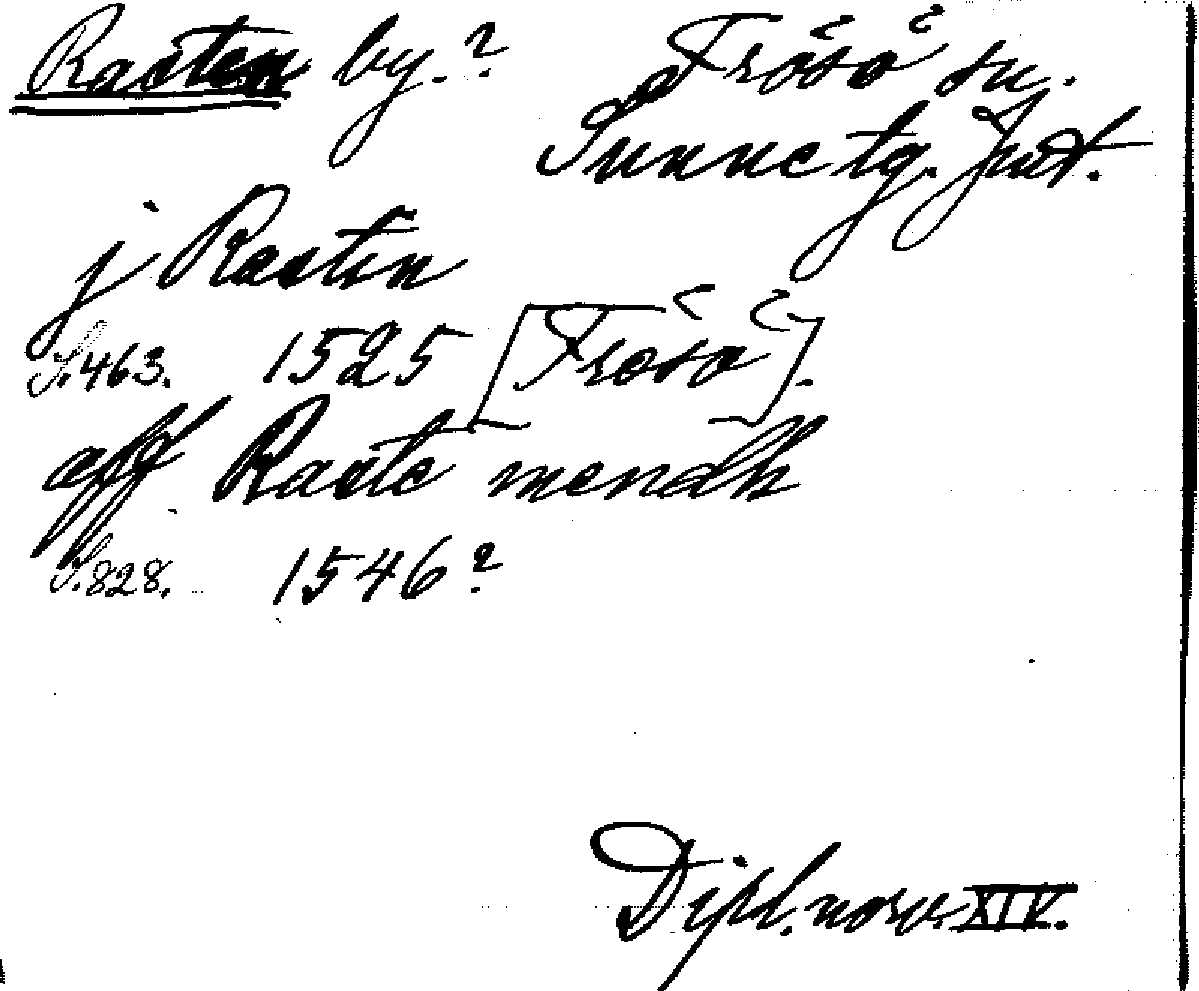 Rasten by.? Frösö sn.
Sunne tg. Jmt.
j Rastin
S. 463. 1525 [Frösö].
aff Raste mendh
S. 828. 1546?
Dipl. norv. XIV.